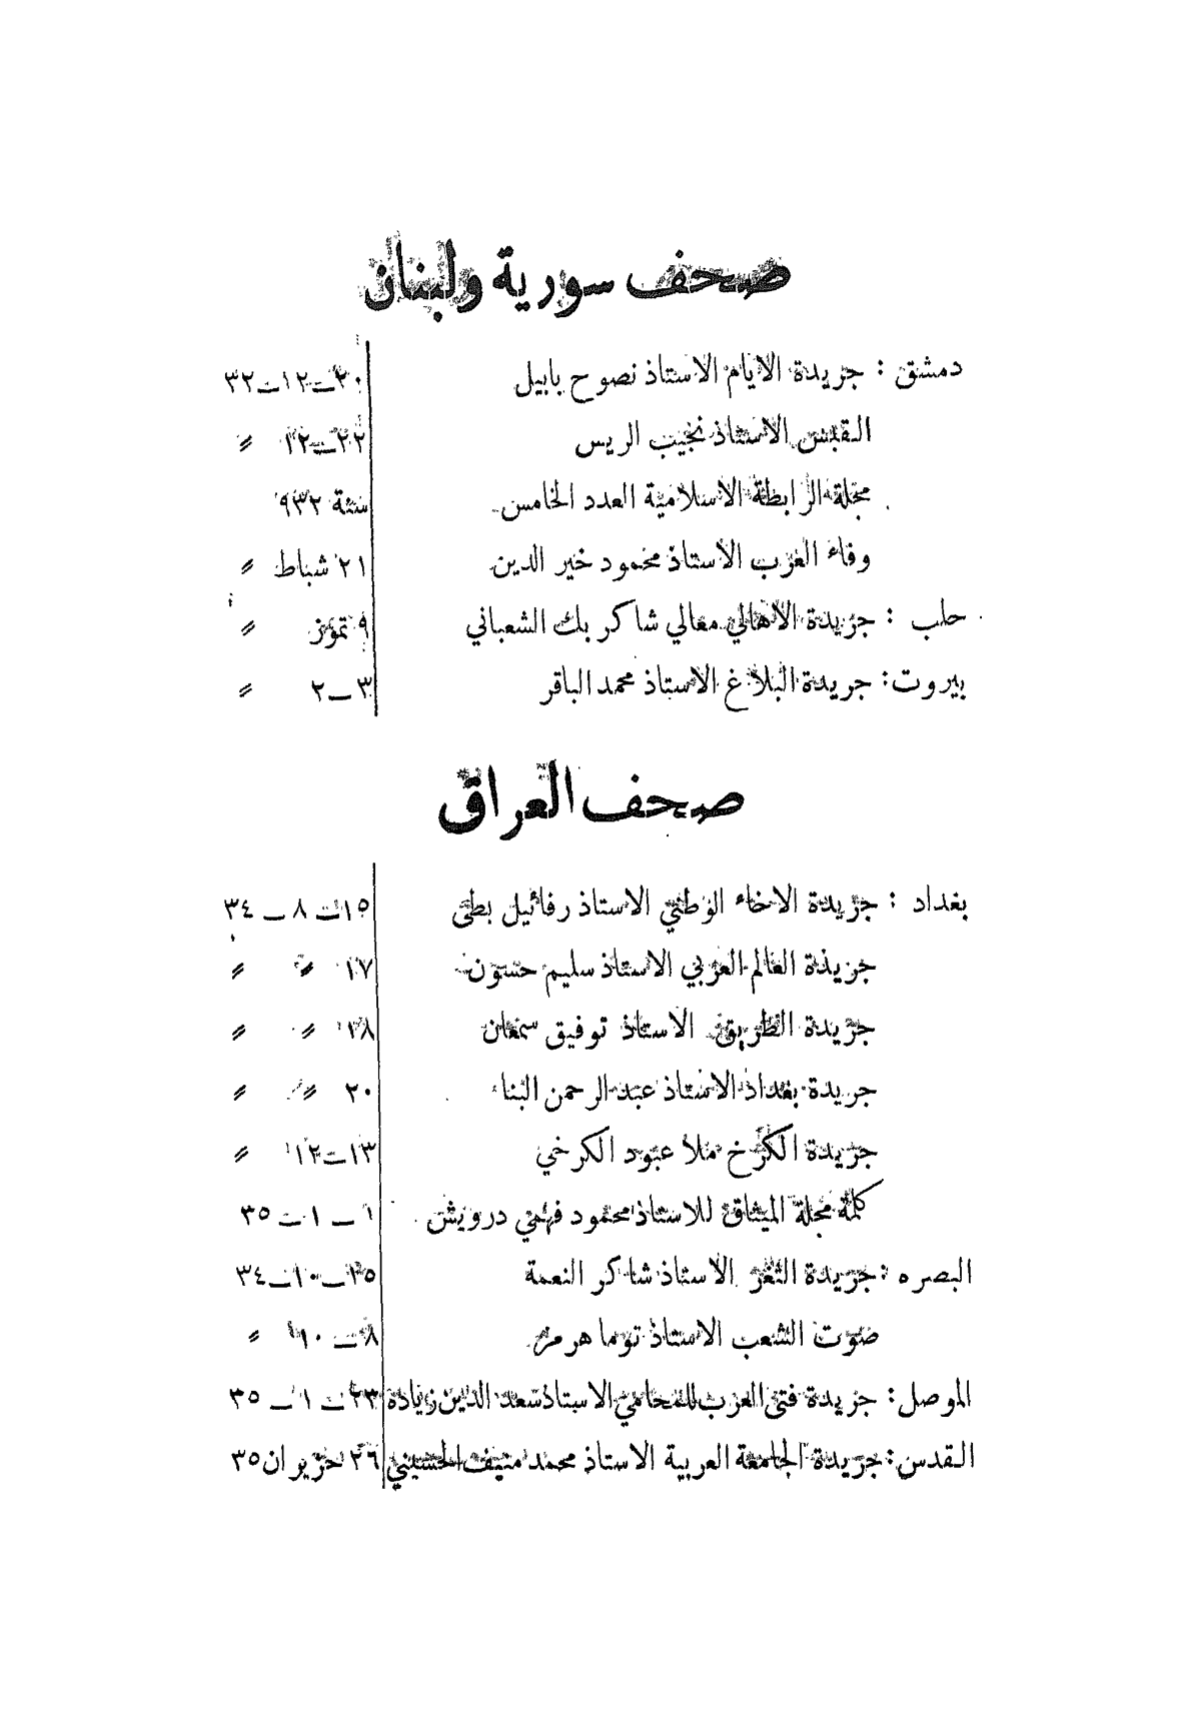 صحف سورية ولبنان
دمشق : جريدة الايام الاستاذ نصوح بابيل ٢٠ــ١٢ــ٣٢
القبس الاستاذ نجيب الريس ٢٢ــ١٢ 〃
مجلة الرابطة الاسلامية العدد الخامس سنة ٩٣٢
وفاء العرب الاستاذ محمود خير الدين ٢١ شباط 〃
حلب : جريدة الاهالي معالي شاكر بك الشعباني ٩ تموز 〃
بيروت : جريدة البلاغ الاستاذ محمد الباقر ٣ــ٢ 〃
صحف العراق
بغداد : جريدة الاخاء الوطني الاستاذ رفائيل بطى ١٥ــ٨ــ٣٤
جريدة العالم العربي الاستاذ سليم حسون ١٧ 〃 〃
جريدة الطريق الاستاذ توفيق سمعان ١٨ 〃 〃
جريدة بغداد الاستاذ عبد الرحمن البناء ٢٠ 〃 〃
جريدة الكرخ ملا عبود الكرخي ١٣ــ١٢ 〃
كلمة مجلة الميثاق للاستاذ محمود فهمي درويش ١ــ١ــ٣٥
البصره : جريدة الثغر الاستاذ شاكر النعمة ٢٥ــ١٠ــ٣٤
صوت الشعب الاستاذ توما هرمز ٨ــ١٠ 〃
الموصل : جريدة فتى العرب للمحامي الاستاذ سعد الدين زيادة ٢٣ــ١ــ٣٥
القدس : جريدة الجامعة العربية الاستاذ محمد منيف الحسيني ٢٦ حزيران ٣٥